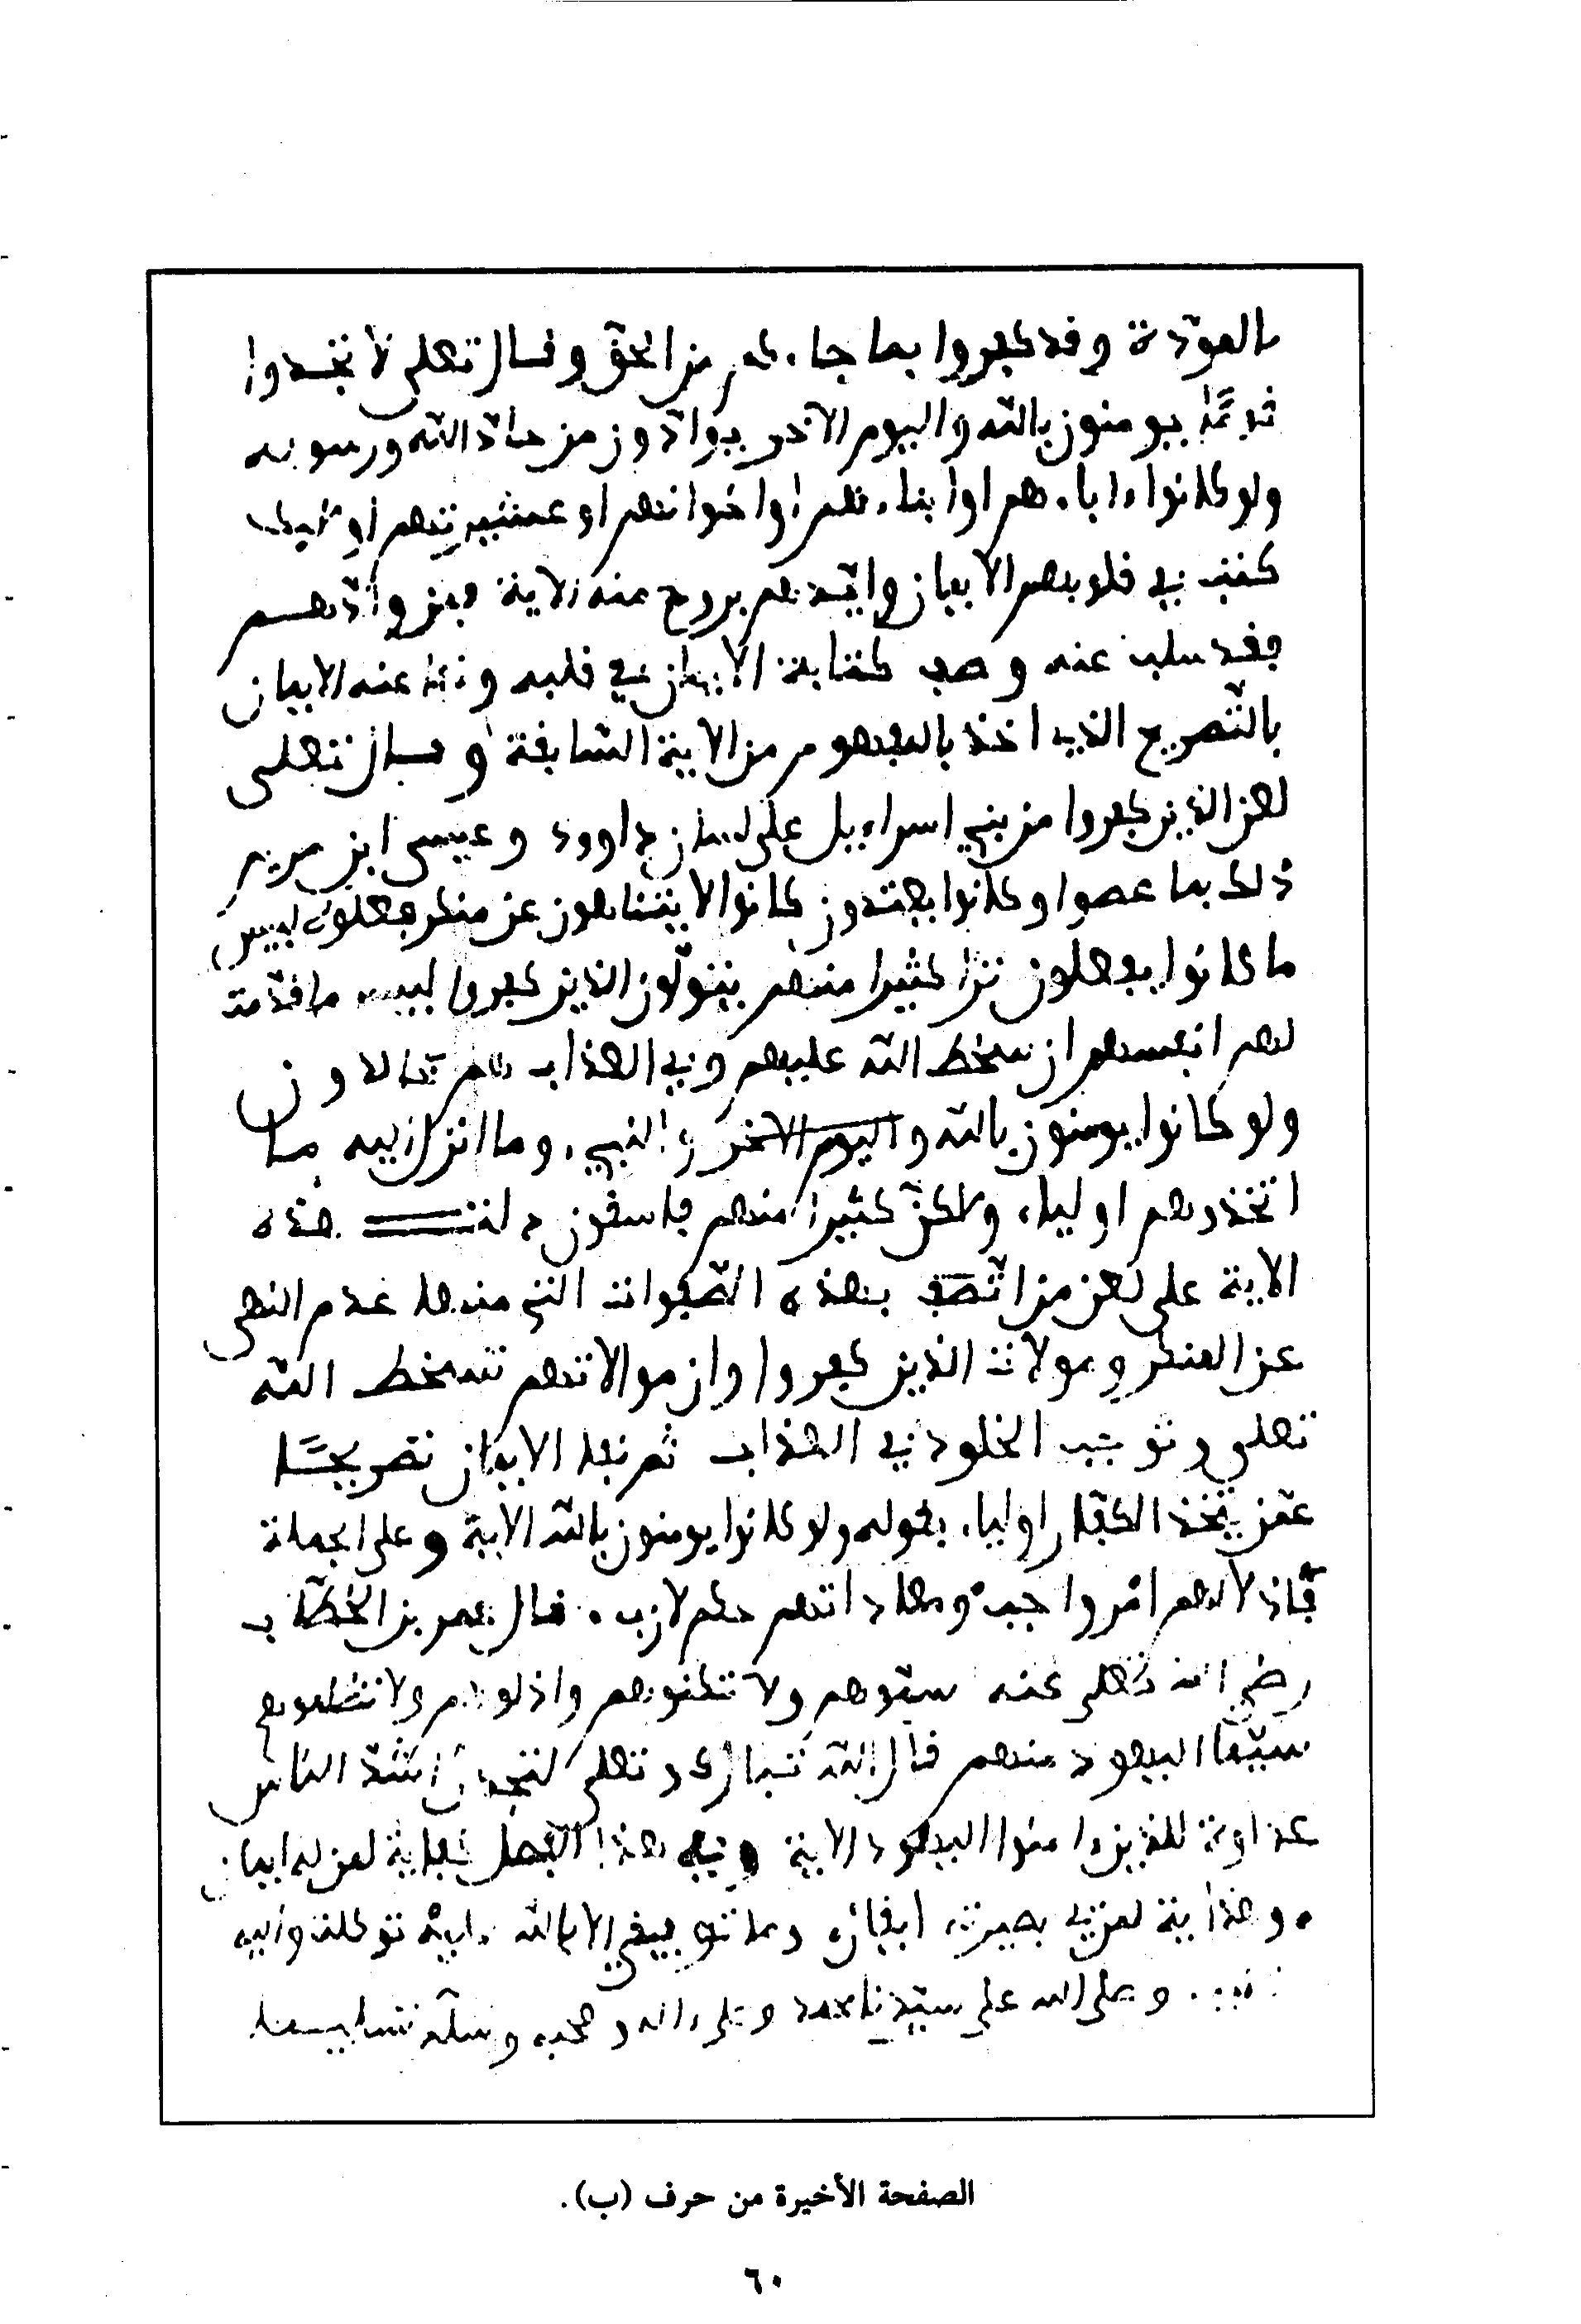 بالمودة وقد كفروا بما جاءكم من الحق وقال تعلى لا تجدوا
قوما يومنون بالله واليوم الآخر يوادّون من حادّ الله ورسوله
ولو كانوا ءاباءهم او ابناءهم او اخوانهم او عشيرتهم اولئك
كتب في قلوبهم الايمان وايّدهم بروح منه الاية فمن وادّهم
فقد سلب عنه وصف كتابة الايمان في قلبه ونفا عنه الايمان
بالتصريح الذي اخذ بالمفهوم من الاية السّابقة وقال تعلى
لعن الذين كفروا من بني اسراءيل على لسان داوود وعيسى ابن مريم
ذلك بما عصوا وكانوا يعتدون كانوا لا يتناهون عن منكر فعلوه لبيس
ما كانوا يفعلون ترا كثيرا منهم يتولّون الذين كفروا لبيس ما قدّمت
لهم انفسهم ان سخط الله عليهم وفي العذاب هم خالدون
ولو كانوا يومنون بالله واليوم الاخر والنبيء وما انزل اليه ما
اتخذوهم اولياء ولاكنّ كثيرا منهم فاسقون دلت هذه
الاية على لعن من اتّصف بهذه الصّفوات التي منها عدم النهي
عن المنكر وموالات الذين كفروا وان موالاتهم تسخط الله
تعلى وتوجب الخلود في العذاب ثم نفا الايمان تصريحًا
عمّن يتخذ الكفّار اولياء بقوله ولو كانوا يومنون بالله الاية وعلى الجملة
فإذلالهم امر واجب ومعاداتهم حكم لازب. قال عمر بن الخطّاب
رضي الله تعلى عنه سمّوهم ولا تكنوهم واذلوهم ولا تظلموهم
سيّما اليهود منهم قال الله تبارك وتعلى لتجدنّ اشدّ الناس
عداوة للذين ءامنوا اليهود الاية وفي هذا الفصل كفاية لمن له ايمان
وهداية لمن في بصيرته ايقان وما توفيقي الا بالله عليه توكلت واليه
انيب. وصلى الله على سيّدنا محمد وعلى ءاله وصحبه وسلّم تسليما
الصفحة الأخيرة من حرف (ب).
٦٠